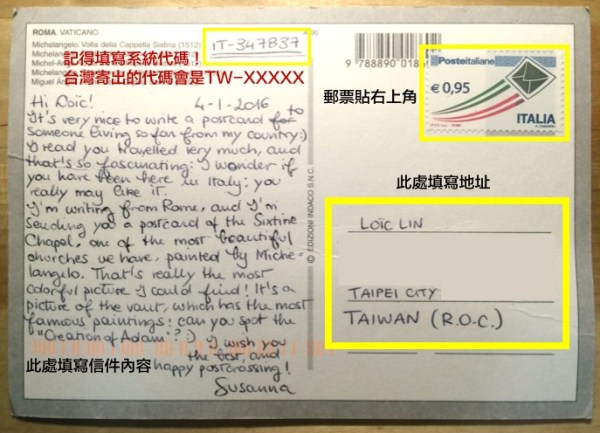 ROMA. VATICANO
Michelangelo. Volta della Cappella Sistina (1512)
IT-347837
記得填寫系統代碼！
台灣寄出的代碼會是TW-XXXXX
Hi Loïc! 4-1-2016
It's very nice to write a postcard for to
someone living so far from my country :)
I read you travelled very much, and
that's so fascinating: I wonder if
you have been here in Italy: you
really may like it.
I'm writing from Rome, and I'm
sending you a postcard of the Sixtine
Chapel, one of the most beautiful
churches we have, painted by Miche-
langelo. That's really the most
colorful picture I could find! It's a
picture of the vault, which has the most
famous paintings: can you spot the
"Creation of Adam"? :) I wish you
the best, and
happy postcrossing!
Susanna
此處填寫信件內容
© EDIZIONI INDACO S.N.C.
郵票貼右上角
Posteitaliane
€ 0,95
ITALIA
此處填寫地址
LOÏC LIN
TAIPEI CITY
TAIWAN (R.O.C.)